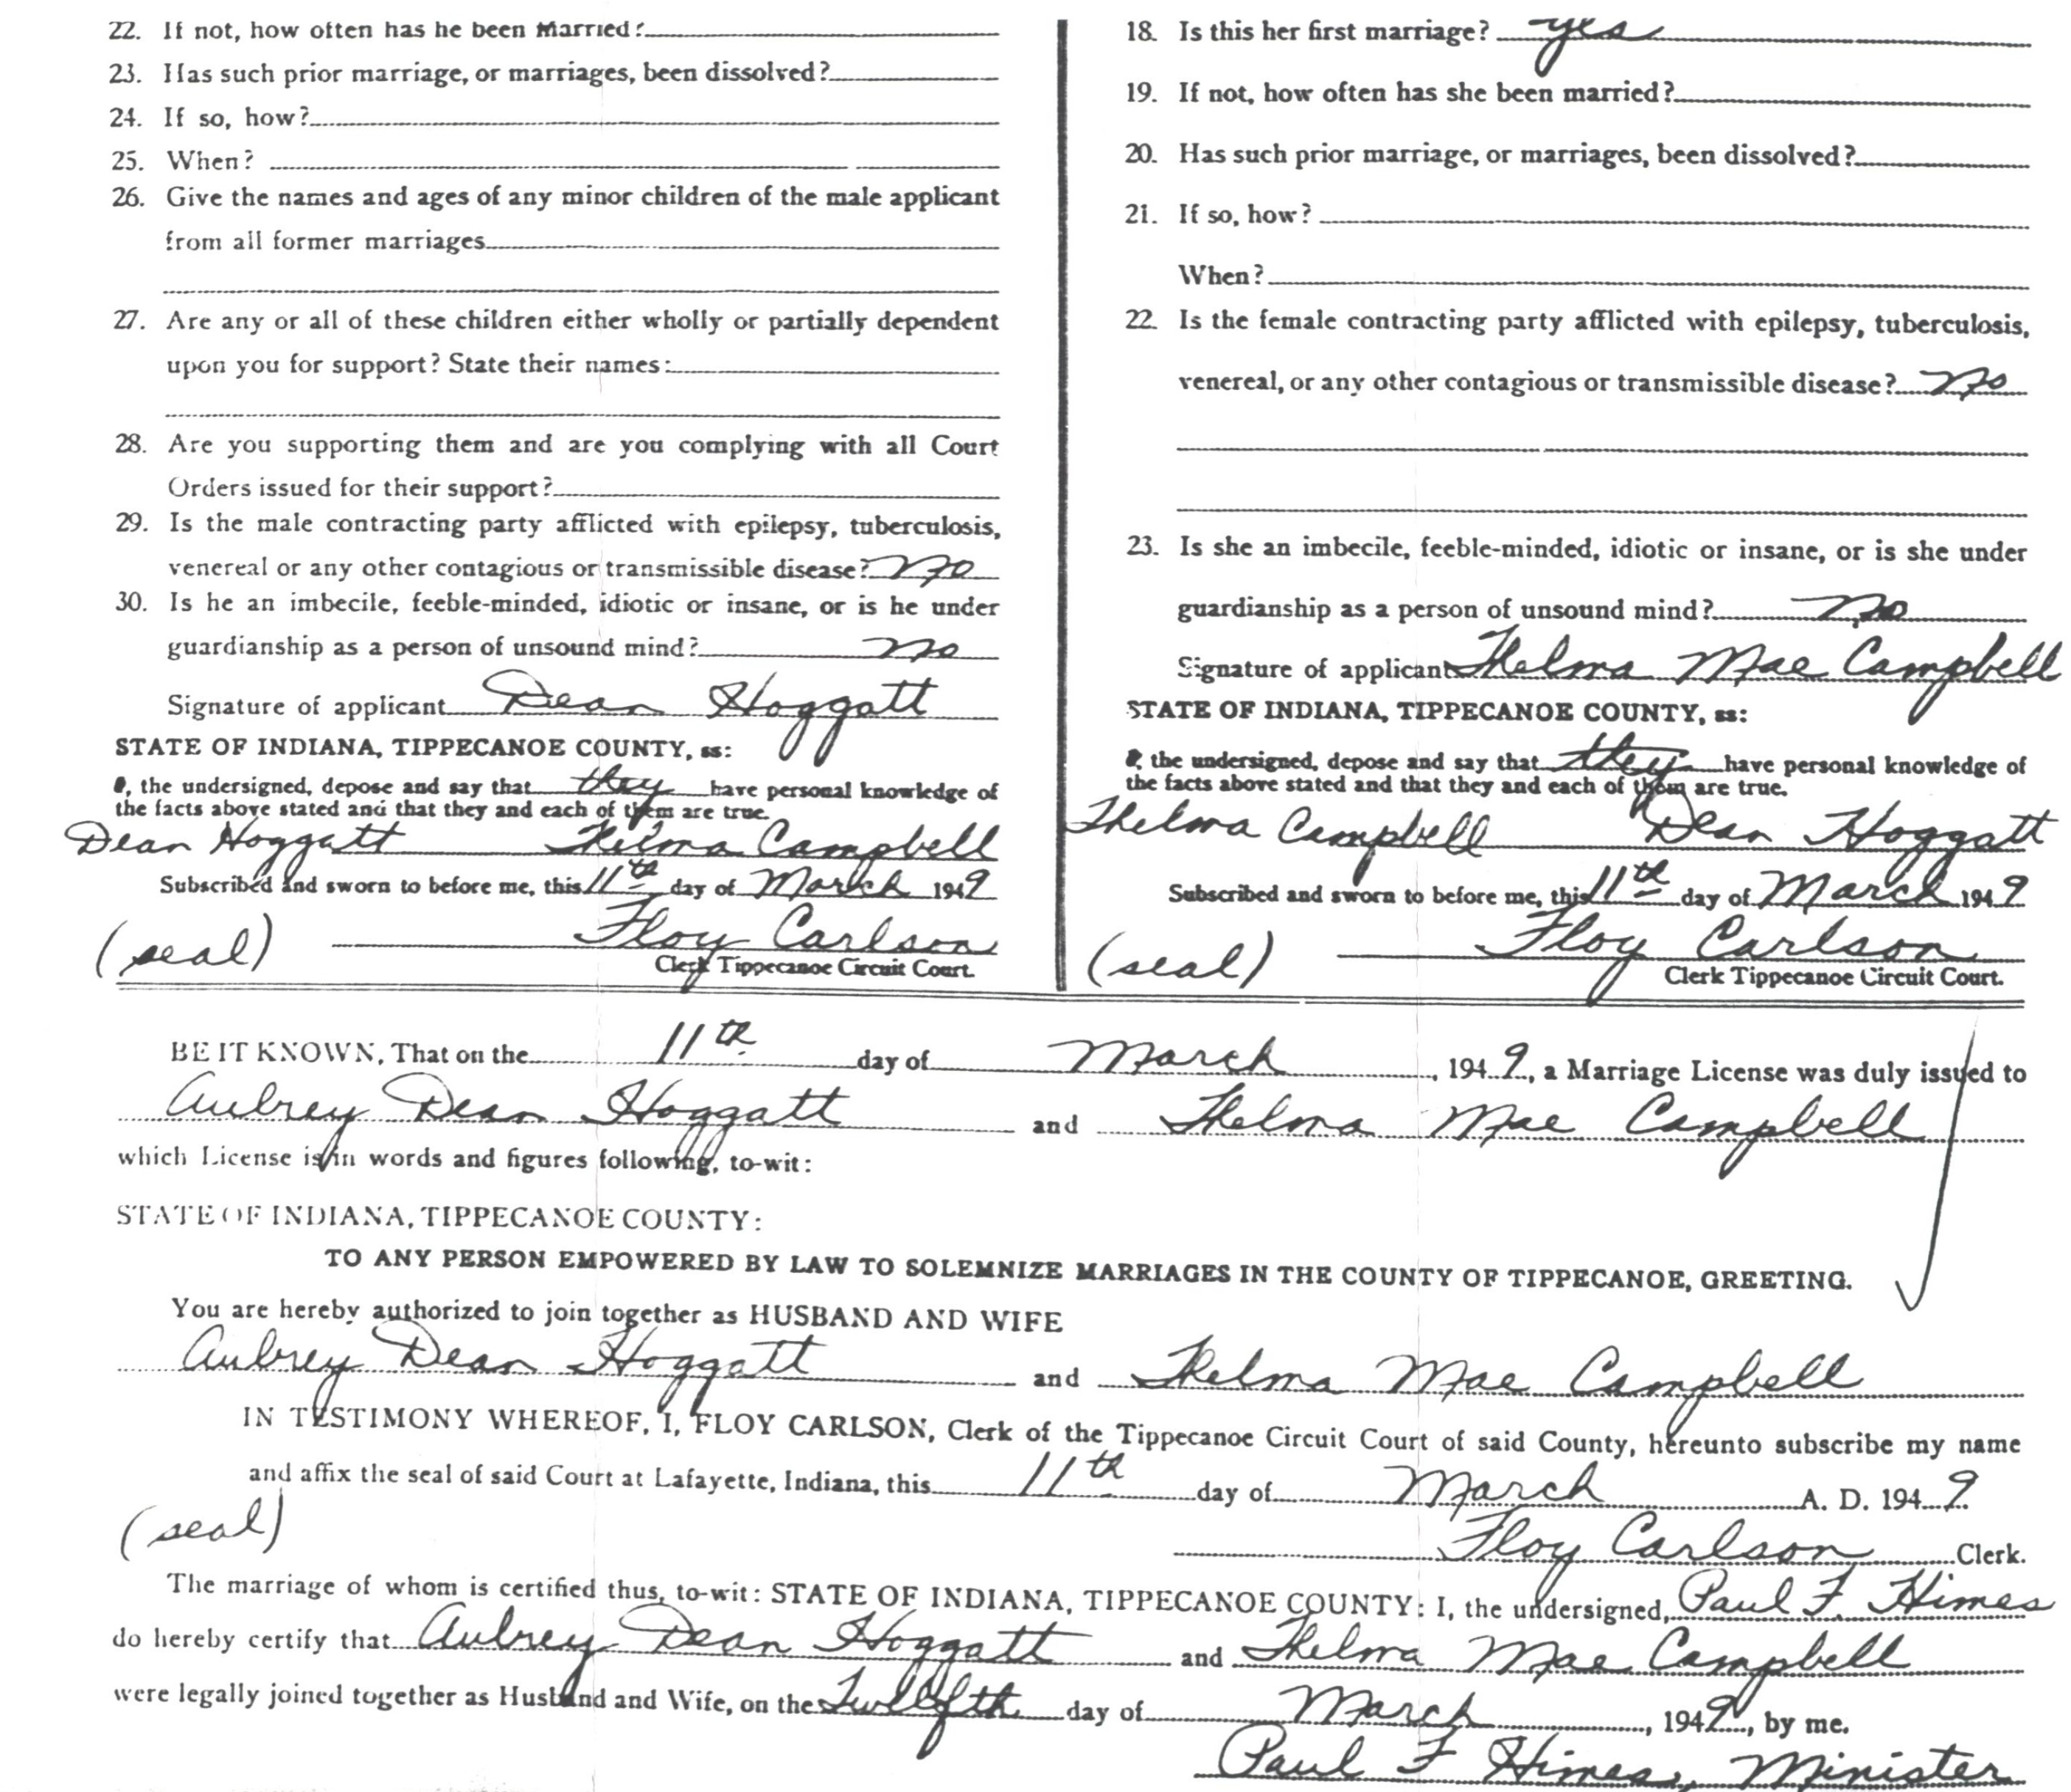 22. If not, how often has he been Married?
23. Has such prior marriage, or marriages, been dissolved?
24. If so, how?
25. When?
26. Give the names and ages of any minor children of the male applicant
from all former marriages
27. Are any or all of these children either wholly or partially dependent
upon you for support? State their names:
28. Are you supporting them and are you complying with all Court
Orders issued for their support?
29. Is the male contracting party afflicted with epilepsy, tuberculosis,
venereal or any other contagious or transmissible disease? no
30. Is he an imbecile, feeble-minded, idiotic or insane, or is he under
guardianship as a person of unsound mind? no
Signature of applicant Dean Hoggatt
STATE OF INDIANA, TIPPECANOE COUNTY, ss:
, the undersigned, depose and say that they have personal knowledge of
the facts above stated and that they and each of them are true.
Dean Hoggatt Thelma Campbell
Subscribed and sworn to before me, this 11th day of March 1949
(seal) Floy Carlson
Clerk Tippecanoe Circuit Court.
18. Is this her first marriage? yes
19. If not, how often has she been married?
20. Has such prior marriage, or marriages, been dissolved?
21. If so, how?
When?
22. Is the female contracting party afflicted with epilepsy, tuberculosis,
venereal, or any other contagious or transmissible disease? no
23. Is she an imbecile, feeble-minded, idiotic or insane, or is she under
guardianship as a person of unsound mind? no
Signature of applicant Thelma Mae Campbell
STATE OF INDIANA, TIPPECANOE COUNTY, ss:
, the undersigned, depose and say that they have personal knowledge of
the facts above stated and that they and each of them are true.
Thelma Campbell Dean Hoggatt
Subscribed and sworn to before me, this 11th day of March 1949
(seal) Floy Carlson
Clerk Tippecanoe Circuit Court.
BE IT KNOWN, That on the 11th day of March, 1949, a Marriage License was duly issued to
Aubrey Dean Hoggatt and Thelma Mae Campbell
which License is in words and figures following, to-wit:
STATE OF INDIANA, TIPPECANOE COUNTY:
TO ANY PERSON EMPOWERED BY LAW TO SOLEMNIZE MARRIAGES IN THE COUNTY OF TIPPECANOE, GREETING.
You are hereby authorized to join together as HUSBAND AND WIFE
Aubrey Dean Hoggatt and Thelma Mae Campbell
IN TESTIMONY WHEREOF, I, FLOY CARLSON, Clerk of the Tippecanoe Circuit Court of said County, hereunto subscribe my name
and affix the seal of said Court at Lafayette, Indiana, this 11th day of March A. D. 1949
(seal) Floy Carlson Clerk.
The marriage of whom is certified thus, to-wit: STATE OF INDIANA, TIPPECANOE COUNTY: I, the undersigned, Paul F. Himes
do hereby certify that Aubrey Dean Hoggatt and Thelma Mae Campbell
were legally joined together as Husband and Wife, on the Twelfth day of March, 1949, by me.
Paul F Himes, Minister